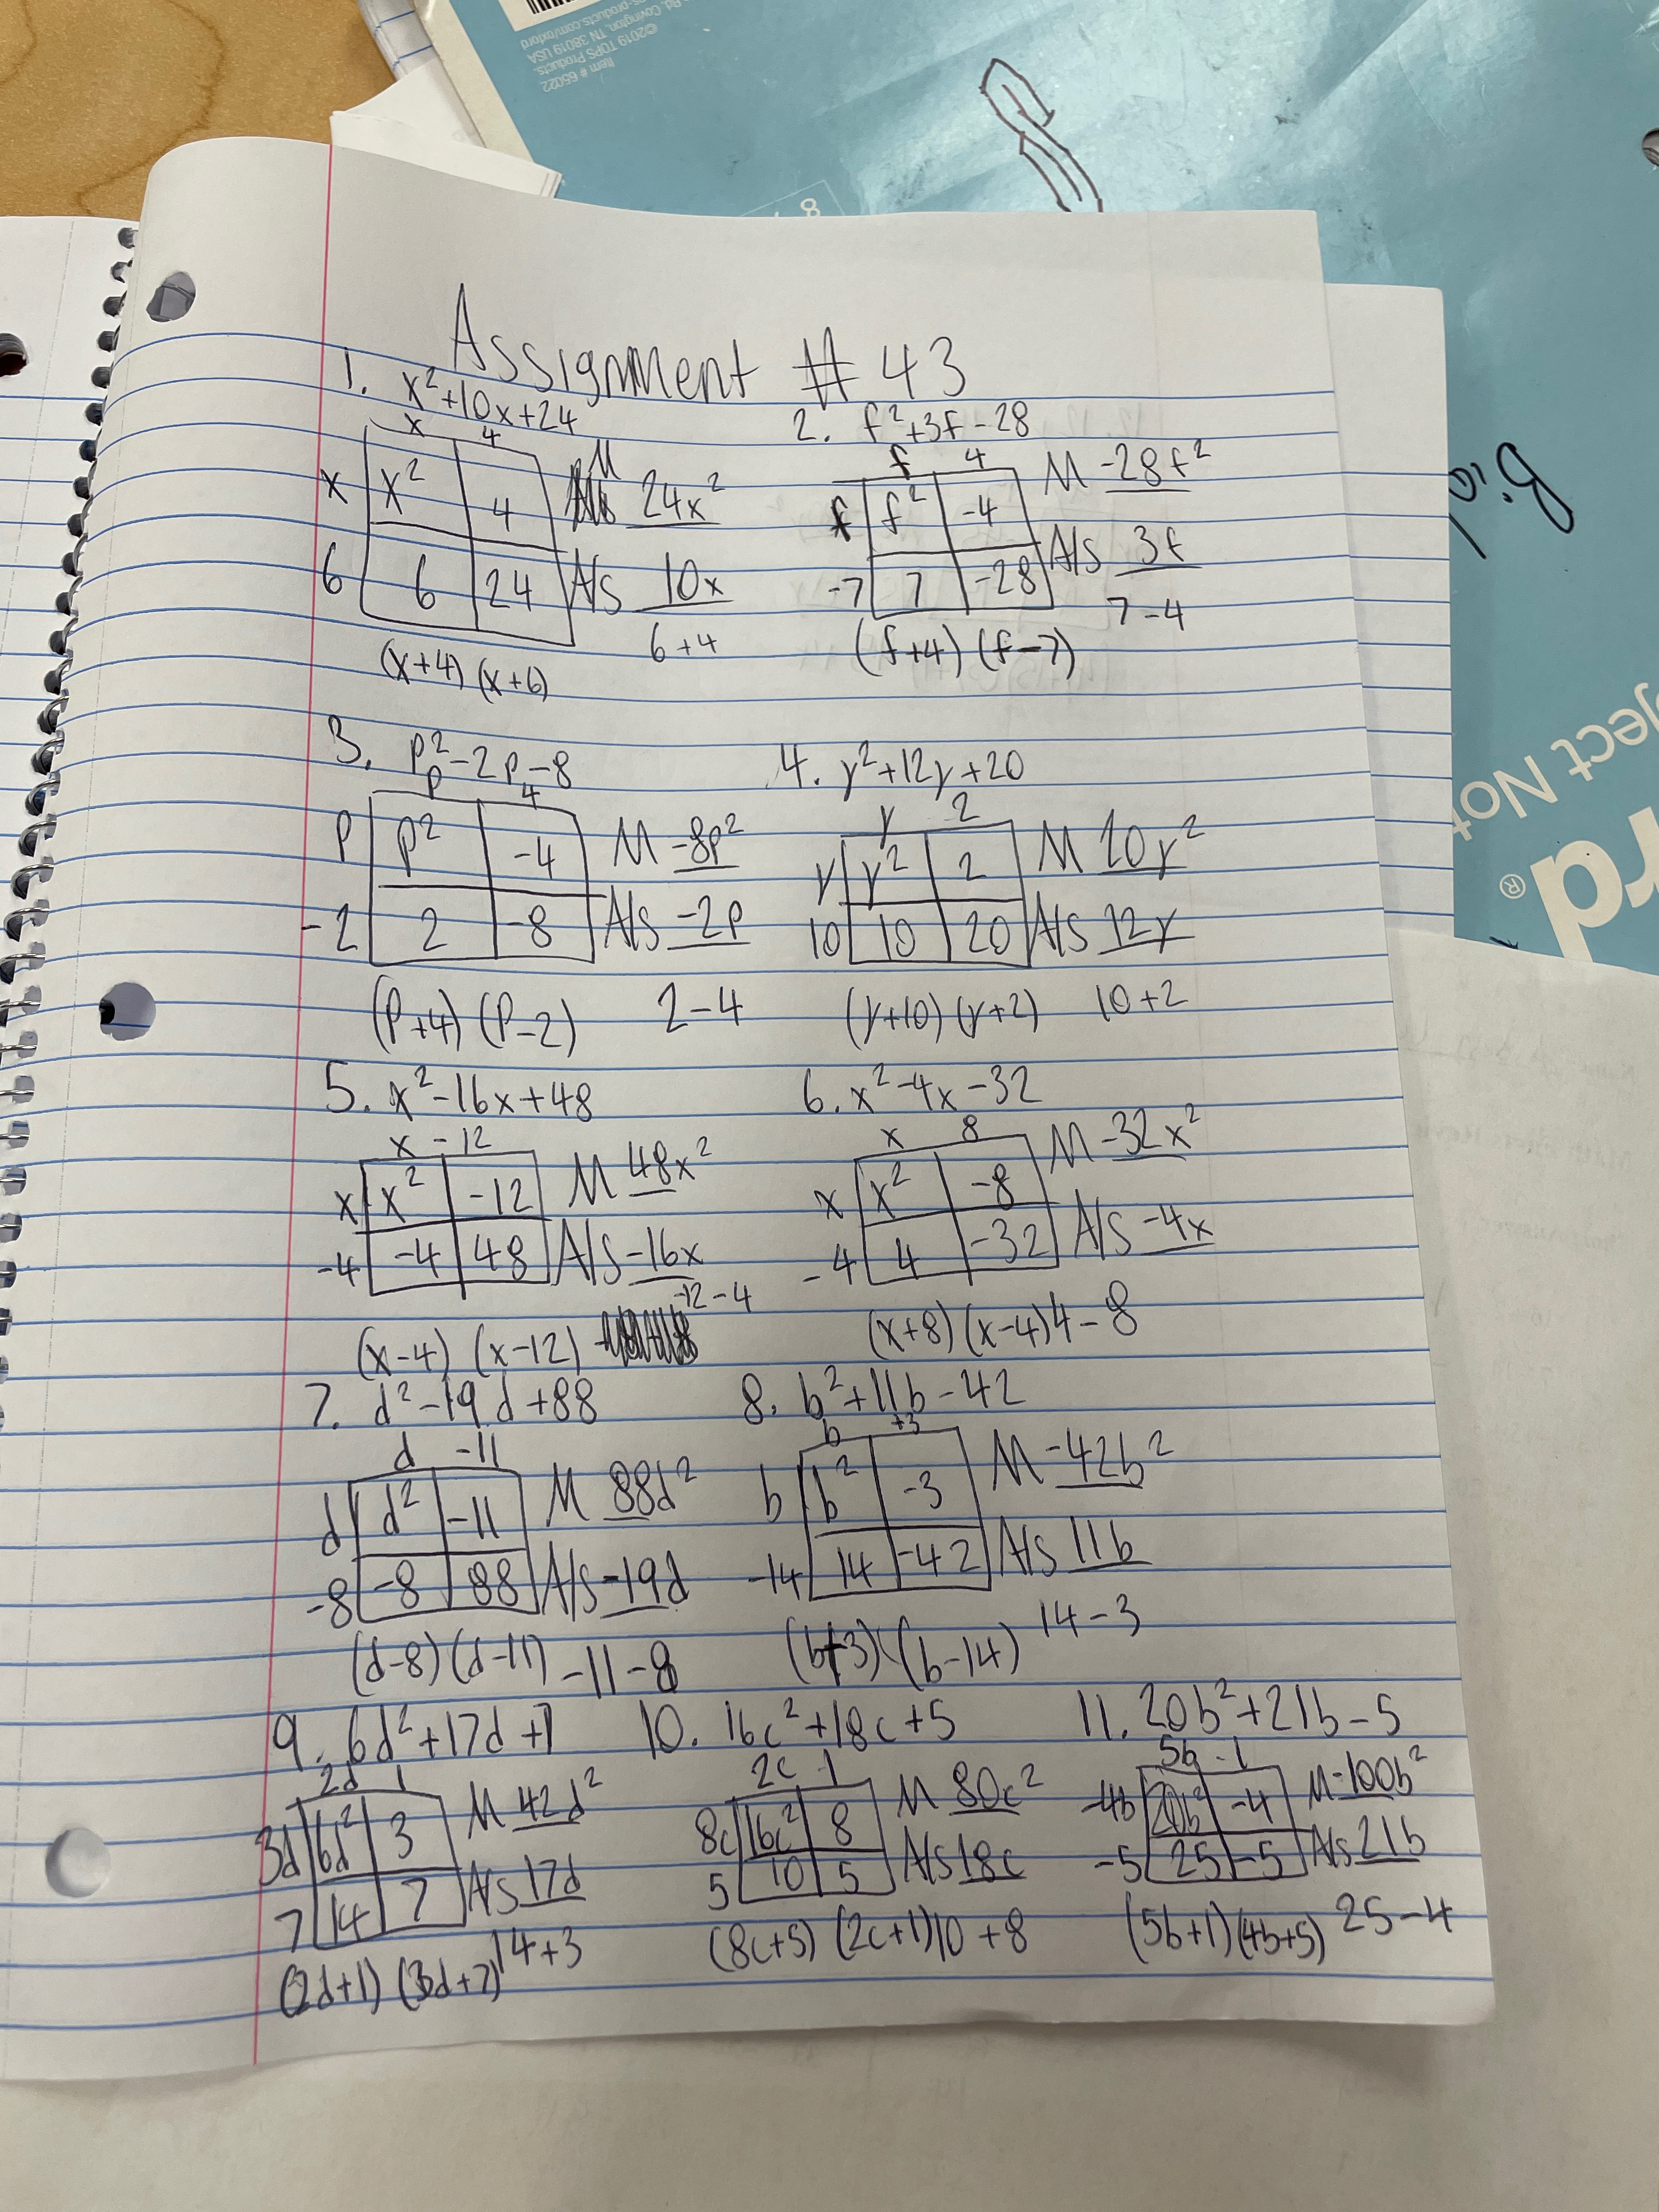 Item # 65022
©2019 TOPS Products.
Rd. Covington, TN 38019 USA
s-products.com/oxford
8
Assignment # 43
1. x²+10x+24
x 4
x x² 4 M 24x²
6 6 24 A/s 10x
6+4
(x+4) (x+6)
2. f²+3f-28
f 4
f f² -4 M -28f²
-7 7 -28 A/s 3f
7-4
(f+4) (f-7)
3. p²-2p-8
p 4
p p² -4 M -8p²
-2 2 -8 A/s -2p
(p+4) (p-2) 2-4
4. y²+12y+20
y 2
y y² 2 M 20y²
10 10 20 A/s 12y
(y+10) (y+2) 10+2
5. x²-16x+48
x -12
x x² -12 M 48x²
-4 -4 48 A/s -16x
-12-4
(x-4) (x-12)
6. x²-4x-32
x 8
x x² -8 M -32x²
-4 4 -32 A/s -4x
(x+8) (x-4) 4-8
7. d²-19d+88
d -11
d d² -11 M 88d²
-8 -8 88 A/s -19d
(d-8) (d-11) -11-8
8. b²+11b-42
b +3
b b² -3 M -42b²
-14 14 -42 A/s 11b
(b+3) (b-14) 14-3
9. 6d²+17d+7
2d 1
3d 6d² 3 M 42d²
7 14 7 A/s 17d
14+3
(2d+1) (3d+7)
10. 16c²+18c+5
2c 1
8c 16c² 8 M 80c²
5 10 5 A/s 18c
(8c+5) (2c+1) 10+8
11. 20b²+21b-5
5b -1
-4b 20b² -4 M -100b²
-5 25 -5 A/s 21b
(5b+1) (4b+5) 25-4
ject Not
rd®